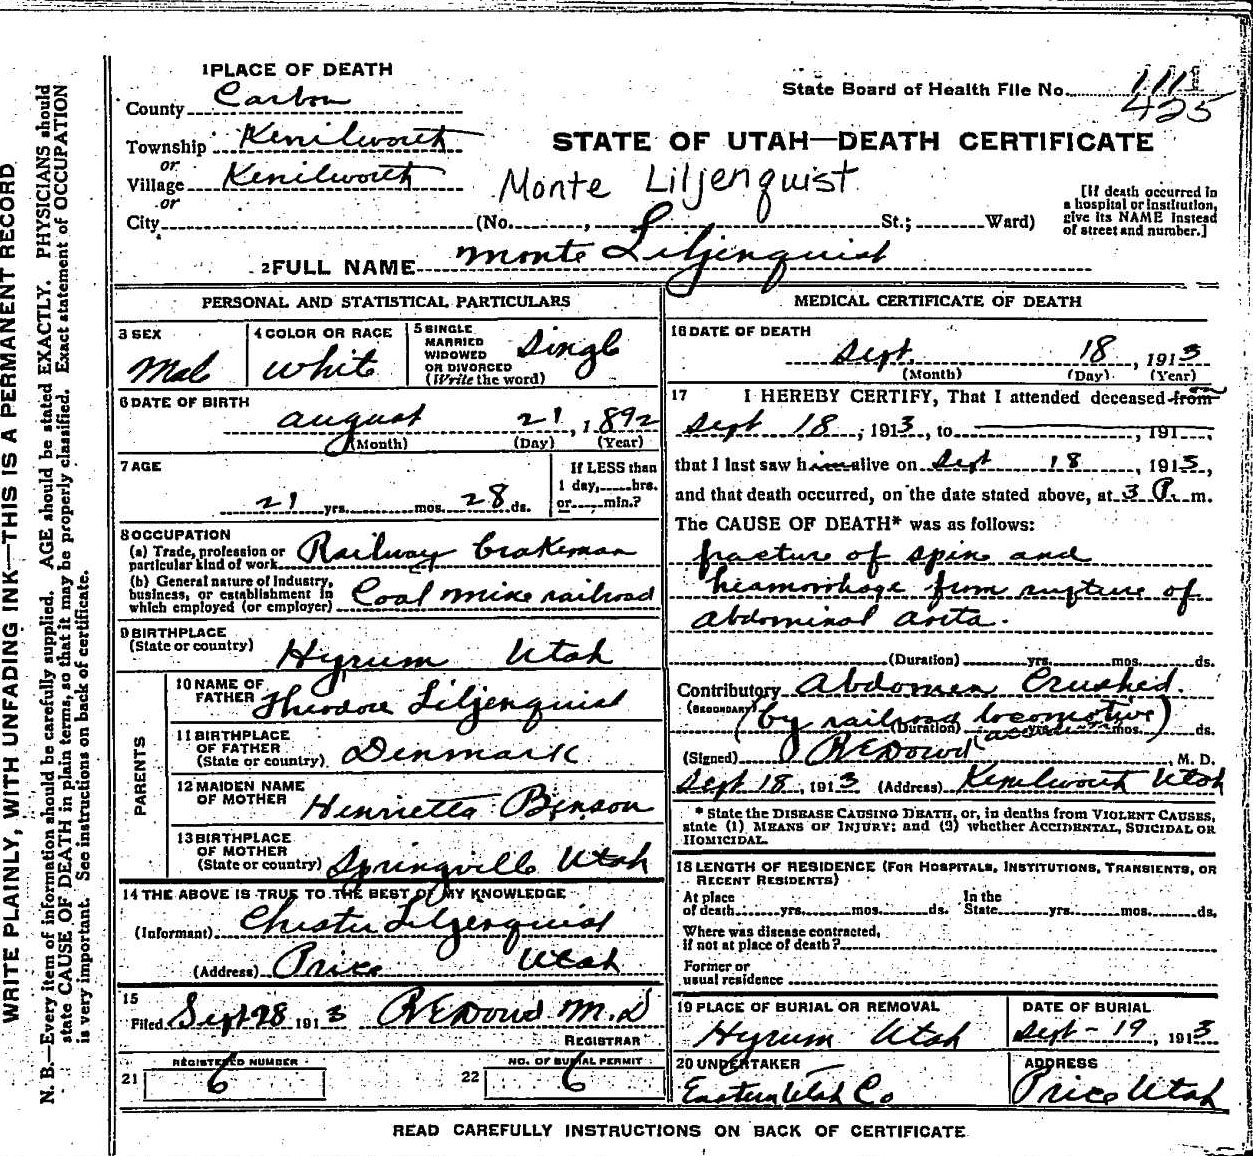 1 PLACE OF DEATH
County Carbon
Township Kenilworth
or
Village Kenilworth
or
City
State Board of Health File No. 1111
425
STATE OF UTAH—DEATH CERTIFICATE
Monte Liljenquist
(No. , St.; Ward)
[If death occurred in
a hospital or institution,
give its NAME instead
of street and number.]
2 FULL NAME Monte Liljenquist
PERSONAL AND STATISTICAL PARTICULARS
3 SEX
Male
4 COLOR OR RACE
White
5 SINGLE
MARRIED
WIDOWED
OR DIVORCED
(Write the word)
Single
6 DATE OF BIRTH
August 21, 1892
(Month) (Day) (Year)
7 AGE
21 yrs. mos. 28 ds.
If LESS than
1 day, hrs.
or min.?
8 OCCUPATION
(a) Trade, profession or
particular kind of work Railway brakeman
(b) General nature of Industry,
business, or establishment in
which employed (or employer) Coal mine railroad
9 BIRTHPLACE
(State or country) Hyrum Utah
PARENTS
10 NAME OF
FATHER Theodore Liljenquist
11 BIRTHPLACE
OF FATHER
(State or country) Denmark
12 MAIDEN NAME
OF MOTHER Henrietta Benson
13 BIRTHPLACE
OF MOTHER
(State or country) Springville Utah
14 THE ABOVE IS TRUE TO THE BEST OF MY KNOWLEDGE
(Informant) Chester Liljenquist
(Address) Price Utah
15
Filed Sept 28 1913 R E Dowd M.D
REGISTRAR
21 REGISTERED NUMBER
6
22 NO. OF BURIAL PERMIT
6
MEDICAL CERTIFICATE OF DEATH
16 DATE OF DEATH
Sept. 18, 1913
(Month) (Day) (Year)
17 I HEREBY CERTIFY, That I attended deceased from
Sept 18, 1913, to , 191 ,
that I last saw him alive on Sept 18, 1913,
and that death occurred, on the date stated above, at 3 P. m.
The CAUSE OF DEATH* was as follows:
fracture of spine and
heamorrhage from rupture of
abdominal aorta.
(Duration) yrs. mos. ds.
Contributory Abdomen Crushed.
(SECONDARY) (by railroad locomotive)
(Duration) yrs. mos. ds.
(accidental)
(Signed) R E Dowd, M. D.
Sept 18, 1913 (Address) Kenilworth Utah
* State the DISEASE CAUSING DEATH, or, in deaths from VIOLENT CAUSES,
state (1) MEANS OF INJURY; and (2) whether ACCIDENTAL, SUICIDAL OR
HOMICIDAL.
18 LENGTH OF RESIDENCE (FOR HOSPITALS, INSTITUTIONS, TRANSIENTS, OR
RECENT RESIDENTS)
At place
of death yrs. mos. ds.
In the
State yrs. mos. ds.
Where was disease contracted,
if not at place of death?
Former or
usual residence
19 PLACE OF BURIAL OR REMOVAL
Hyrum Utah
DATE OF BURIAL
Sept - 19, 1913
20 UNDERTAKER
Eastern Utah Co
ADDRESS
Price Utah
READ CAREFULLY INSTRUCTIONS ON BACK OF CERTIFICATE
WRITE PLAINLY, WITH UNFADING INK—THIS IS A PERMANENT RECORD
N. B.—Every item of information should be carefully supplied. AGE should be stated EXACTLY. PHYSICIANS should
state CAUSE OF DEATH in plain terms, so that it may be properly classified. Exact statement of OCCUPATION
is very important. See instructions on back of certificate.